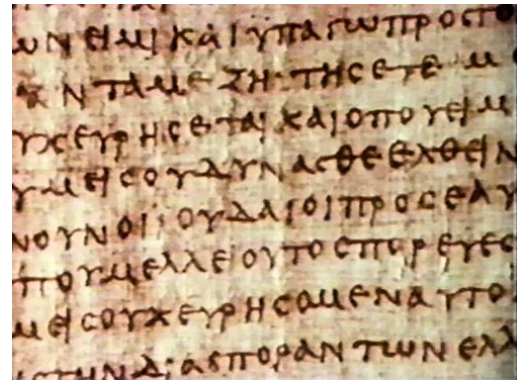 ωΝΕΙΜΙΚΑΙΫΠΑΓωΠΡΟϹΤΟ
ΑΝΤΑΜΕΖΗΤΗϹΕΤΕΜ
ΥΧΕΥΡΗϹΕΤΑΙΚΑΙΟΠΟΥΕΙΜ
ΥΜΕΙϹΟΥΔΥΝΑϹΘΕΕΛΘΕΙΝ
ΝΟΥΝΟΙΪΟΥΔΑΙΟΙΠΡΟϹΕΑΥ
ΠΟΥΜΕΛΛΕΙΟΥΤΟϹΠΟΡΕΥΕϹ
ΜΕΙϹΟΥΧΕΥΡΗϹΟΜΕΝΑΥΤΟ
ϹΤΗΝΔΙΑϹΠΟΡΑΝΤωΝΕΛΛ